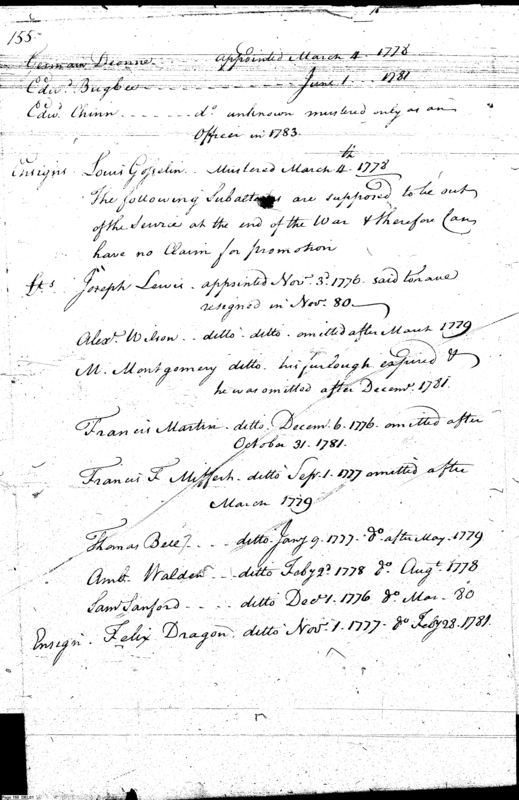 155
Germain Dionne appointed March 4. 1778
Edwd. Bugbee - - - - - - June 1. .. 1781
Edwd. Chinn - - - - - - do. unknown mustered only as an
Officer in 1783.
Ensigns Louis Gosselin .. Mustered March 4th 1778
The following Subalterns are supposed to be out
of the Service at the end of the War & therefore Can
have no Claim for promotion
Lts Joseph Lewis - appointed Novr. 3d. 1776. said to have
resigned in Novr. 80.
Alexr. Wilson .. ditto. ditto. omitted after March 1779
M. Montgomery ditto. his furlough expired &
he was omitted after Decemr. 1781.
Francis Martin - ditto. Decem. 6. 1776. omitted after
October 31. 1781.
Francis F. - ditto Sepr. 1. 1777 omitted after
March 1779
Thomas Bell - - - - ditto. Jany 9. 1777. do. after May. 1779
Ambe. Walden .. ditto Feby 2d. 1778 do. Augt. 1778
Saml. Sanford - - - - ditto Decr. 1. 1776 do. Mar. 80
Ensign. Felix Dragon. ditto Novr. 1. 1777. do Feby 28. 1781.